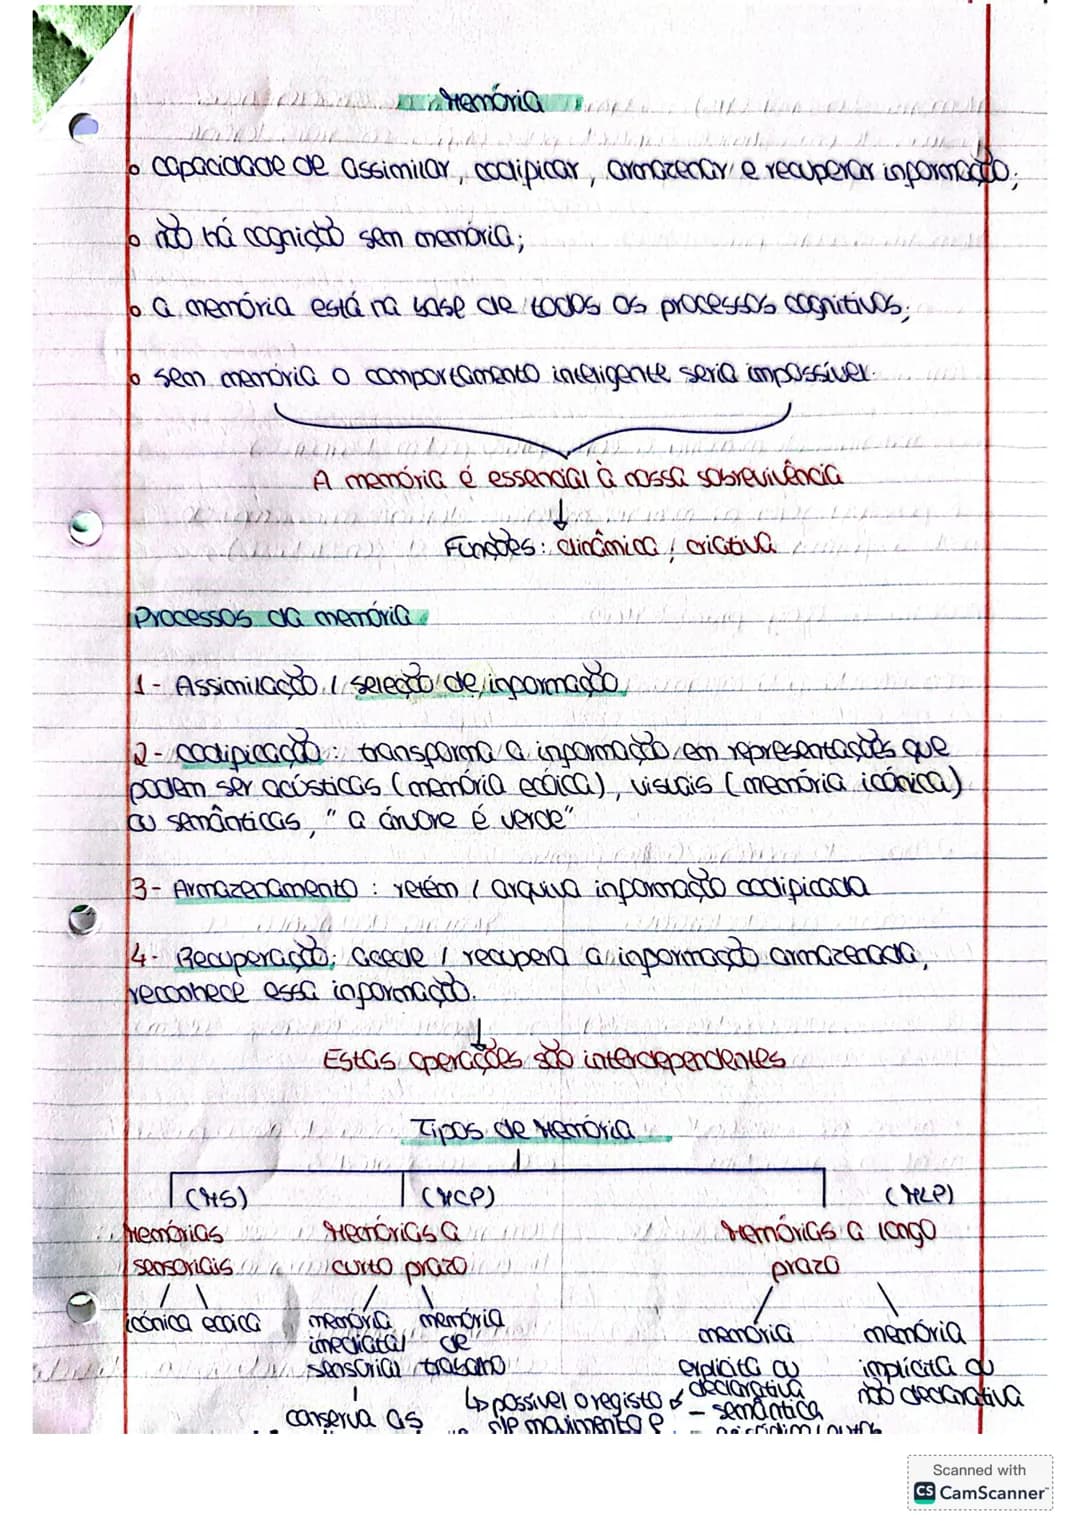 Memória
• capacidade de assimilar, codificar, armazenar e recuperar informação;
• não há cognição sem memória;
• a memória está na base de todos os processos cognitivos;
• sem memória o comportamento inteligente seria impossível.
A memória é essencial à nossa sobrevivência
↓
Funções: dinâmica / criativa
Processos da memória
1- Assimilação / seleção de informação
2- codificação: transforma a informação em representações que
podem ser acústicas (memória ecóica), visuais (memória icónica)
ou semânticas, "a árvore é verde"
3- Armazenamento: retém / arquiva informação codificada
4- Recuperação: acede / recupera a informação armazenada,
reconhece essa informação.
↓
Estas operações são interdependentes
Tipos de Memória
(MS) (MCP) (MLP)
Memórias Memórias a Memórias a longo
sensoriais curto prazo prazo
icónica ecoica memória memória memória memória
imediata/ de explícita ou implícita ou
sensorial trabalho declarativa não declarativa
↳ possível o registo - semântica
conserva as de movimento e
Scanned with
CS CamScanner